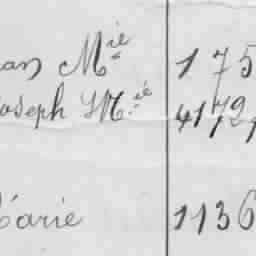 an Mie 175
oseph Mié 4179
arie 1136